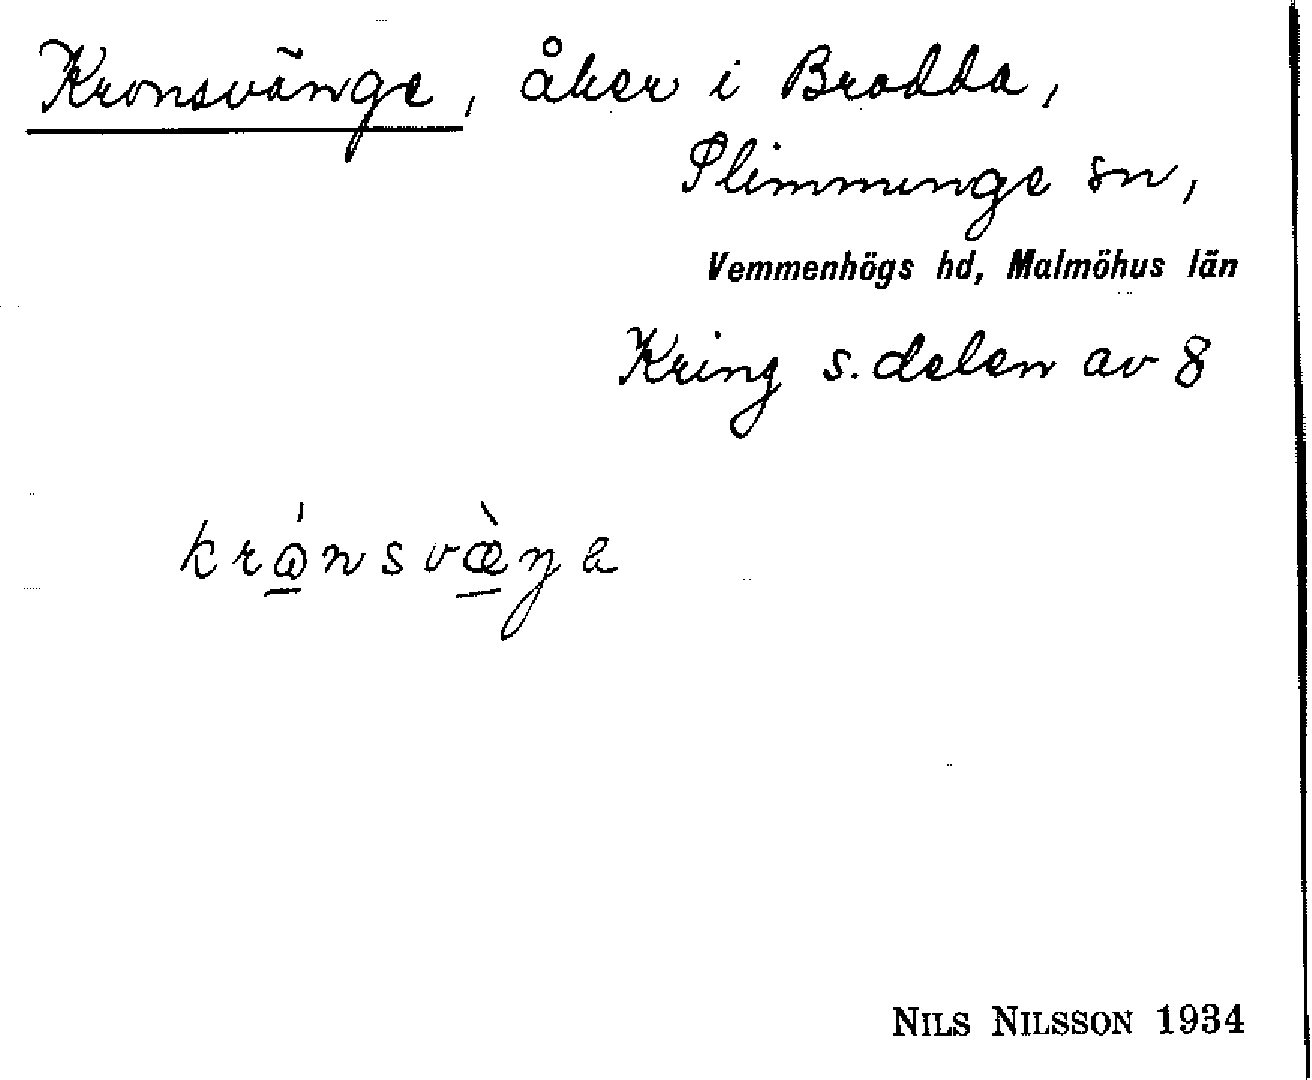 Kronsvänge, åker i Brodda,
Slimminge sn,
Vemmenhögs hd, Malmöhus län
Kring s. delen av 8
NILS NILSSON 1934